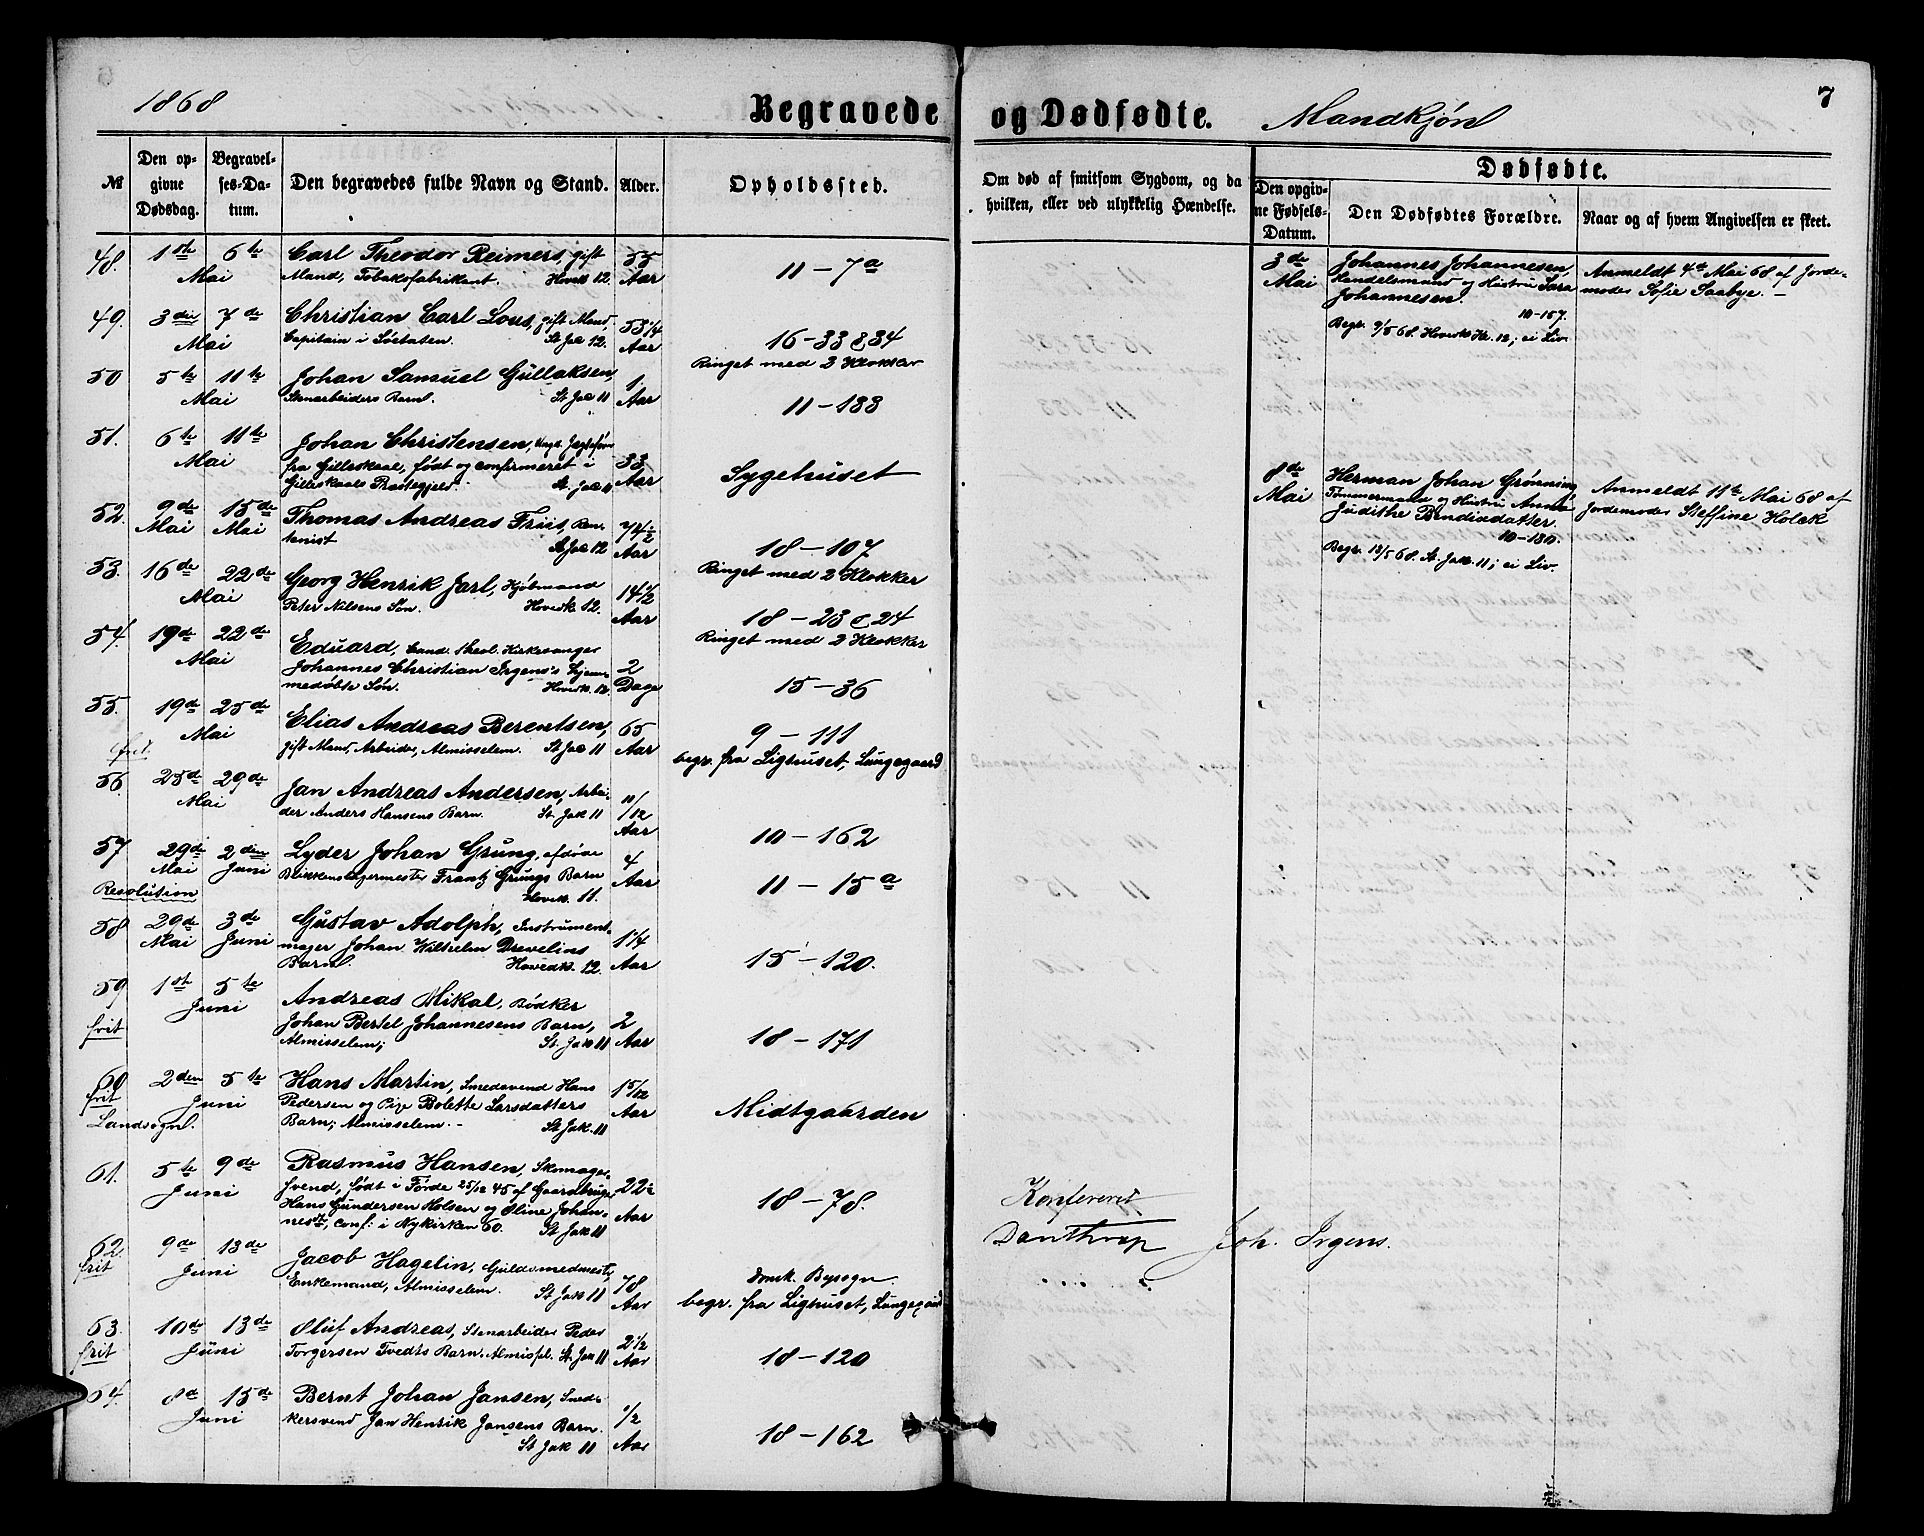 1868
Begravede og Dødfødte. Mandkjøn
7
№
Den opgivne Dødsdag.
Begravelses-Datum.
Den begravedes fulde Navn og Stand.
Alder.
Opholdssted.
Om død af smitsom Sygdom, og da
hvilken, eller ved ulykkelig Hændelse.
Dødfødte.
Den opgivne Fødsels-Datum.
Den Dødfødtes Forældre.
Naar og af hvem Angivelsen er skeet.
48. 1ste 6te Carl Theodor Reimers, gift 55
Mai Mand, Tobaksfabrikant. Hovedk 12. Aar 11-7a
49. 3die 7de Christian Carl Lous, gift Mand, 53 1/4
Mai Capitain i Søetaten. St Jac 12. Aar 16-33 & 34
Ringet med 2 Klokker
50 5te 11te Johan Samuel Gullaksen, 1.
Mai Stenarbeiders Barn. St Jac 11 Aar 11-188
51. 6te 11te Johan Christensen, Ungk.
Mai fra Gilleskaal, født og confirmeret i 33
Gilleskaals Præstegjeld. St. Jac 11 Aar Sygehuset
52. 9de 15de Thomas Andreas Friis, 74 1/2
Mai Mai St Jac 12 Aar 18-107
Ringet med 2 Klokker
53. 16de 22de Georg Henrik Jarl, Kjøbmand 14 1/2
Mai Peter Nilsens Søn. Hovedk 12. Aar 18-23 & 24
Ringet med 2 Klokker
54. 19de 22de Eduard, Cand. theol. Kirkesanger
Mai Johannes Christian Irgens's hjemme- 2
medøbte Søn. Hovedk. 12. Dage 15-36
55. 19de 25de Elias Andreas Berentsen, 65
Mai gift Mand, Arbeider, Almisselem. St Jac 11 Aar 9-111
frit. begr. fra Lighuset, Lungegaard
56. 25de 29de Jan Andreas Andersen, Arbei- 11/12
Mai der Anders Hansens Barn. St. Jak 11 Aar 10-162
57 29de 2den Lyder Johan Grung, afdøde 4
Mai Juni Blikkenslagermester Frantz Grungs Barn Aar 11-15a
Resolution Hovedk. 11.
58 29de 3de Gustav Adolph, Instrument- 1 1/4
Mai Juni mager Johan Wilhelm Drevelins
Barn. Hovedk. 12. Aar 15-120.
59 1ste 5te Andreas Mikal, Bødker
Juni Johan Bertel Johannesens Barn, 2
frit Almisselem; St. Jak 11 Aar 18-171
60 2den 5te Hans Martin, Smedsvend Hans 1 5/12
frit Juni Pedersen og Pige Bolette Larsdatters Aar Midtgaarden
Landsogn. Barn; Almisselem. - St Jak. 11
61. 5te 9de Rasmus Hansen, Skomager-
Juni svend, født i Førde 25/12 45 af Gaardbruger 22 1/2
Hans Gundersen Holsen og Oline Johan- Aar 18-78.
nesdr, conf: i Nykirken 60. St Jak 11
62. 9de 13de Jacob Hagelin, Guldsmedmester,
frit Juni Enkemand, Almisselem. St Jak 11 78 Aar Domk. Bysogn.
begr. fra Lighuset, Lungegaard
63. 10de 13de Oluf Andreas, Stenarbeider Peder 2 1/2
frit Juni Torgersen Tvedts Barn. Almispl. St. Jak 11 Aar 18-120
64. 8d 15de Bernt Johan Jansen, Sned- 1/2
Juni kersvend Jan Henrik Jansens Barn. Aar 18-162
St Jak 11
3de Mai Johannes Johannesen,
Handelsmand og Hustru Sara
Johannesen.
10-157.
Begr. 9/5 68. Hovedk Kr. 12; ei Liv.
Anmeldt 4de Mai 68 af Jorde-
moder Sofie Saabye. -
8de Mai Herman Johan Grønning
Tømmermand og Hustru Anna
Judithe Bendixdatter.
10-130.
Begr. 13/5 68. St. Jak. 11; ei Liv.
Anmeldt 11te Mai 68 af
Jordemoder Steffine Holck
Konfereret
Danthrop Joh. Irgens.